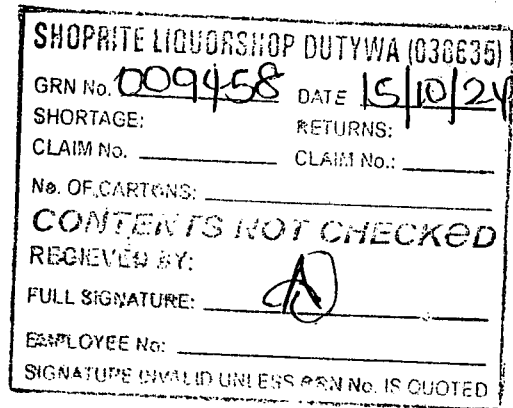 SHOPRITE LIQUORSHOP DUTYWA (038635)
GRN No. 009458 DATE 15/10/24
SHORTAGE: RETURNS:
CLAIM No. CLAIM No.:
No. OF CARTONS:
CONTENTS NOT CHECKeD
RECIEVED BY:
FULL SIGNATURE:
EMPLOYEE No:
SIGNATURE INVALID UNLESS GRN No. IS QUOTED